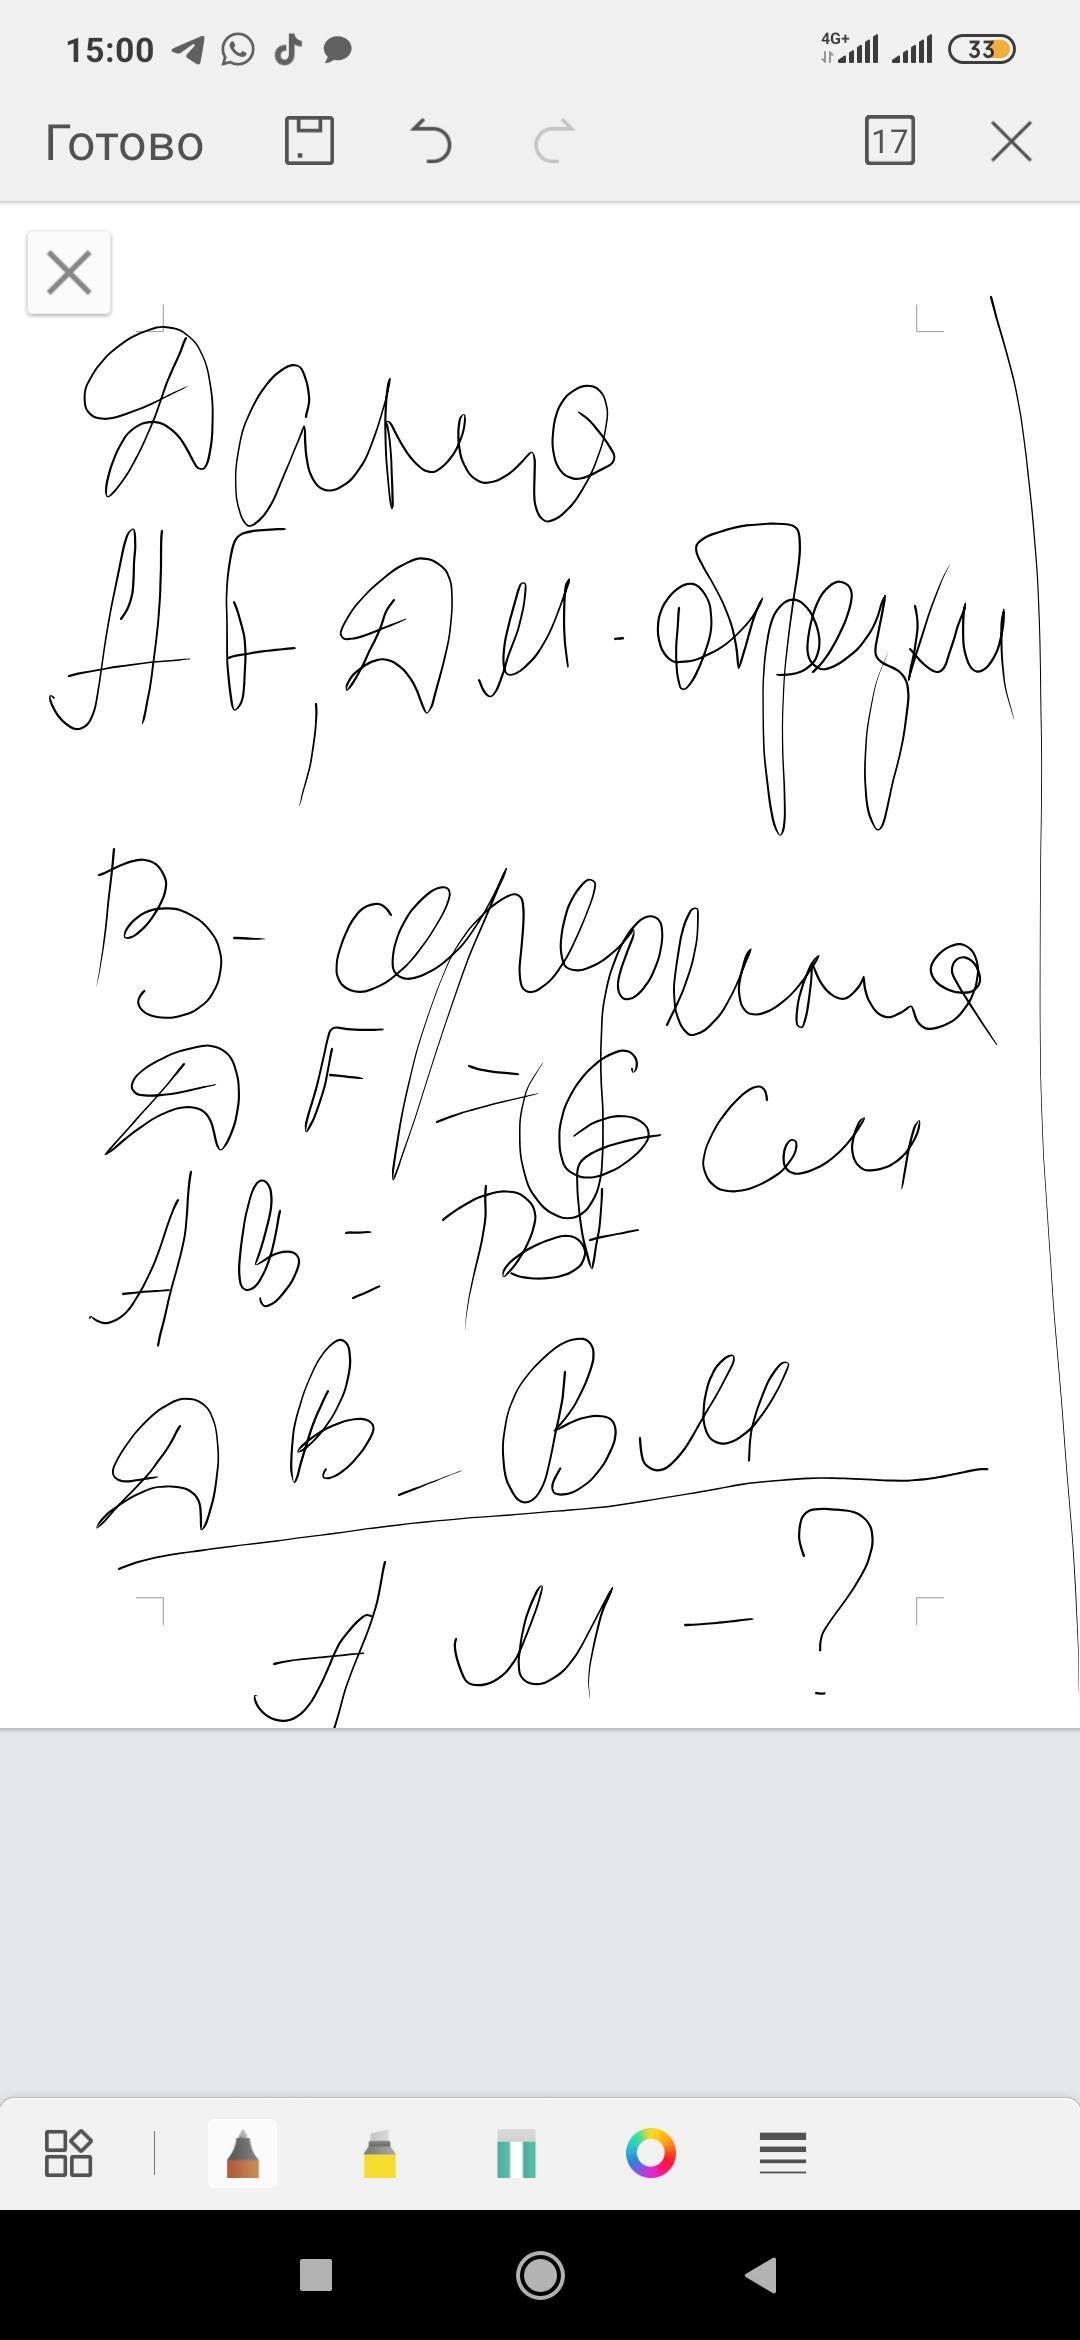 15:00
4G+
33
Готово
17
Дано
AF, ДМ - отрезки
B - середина
ДF = 6 см
AB = BF
ДВ = ВМ
АМ - ?